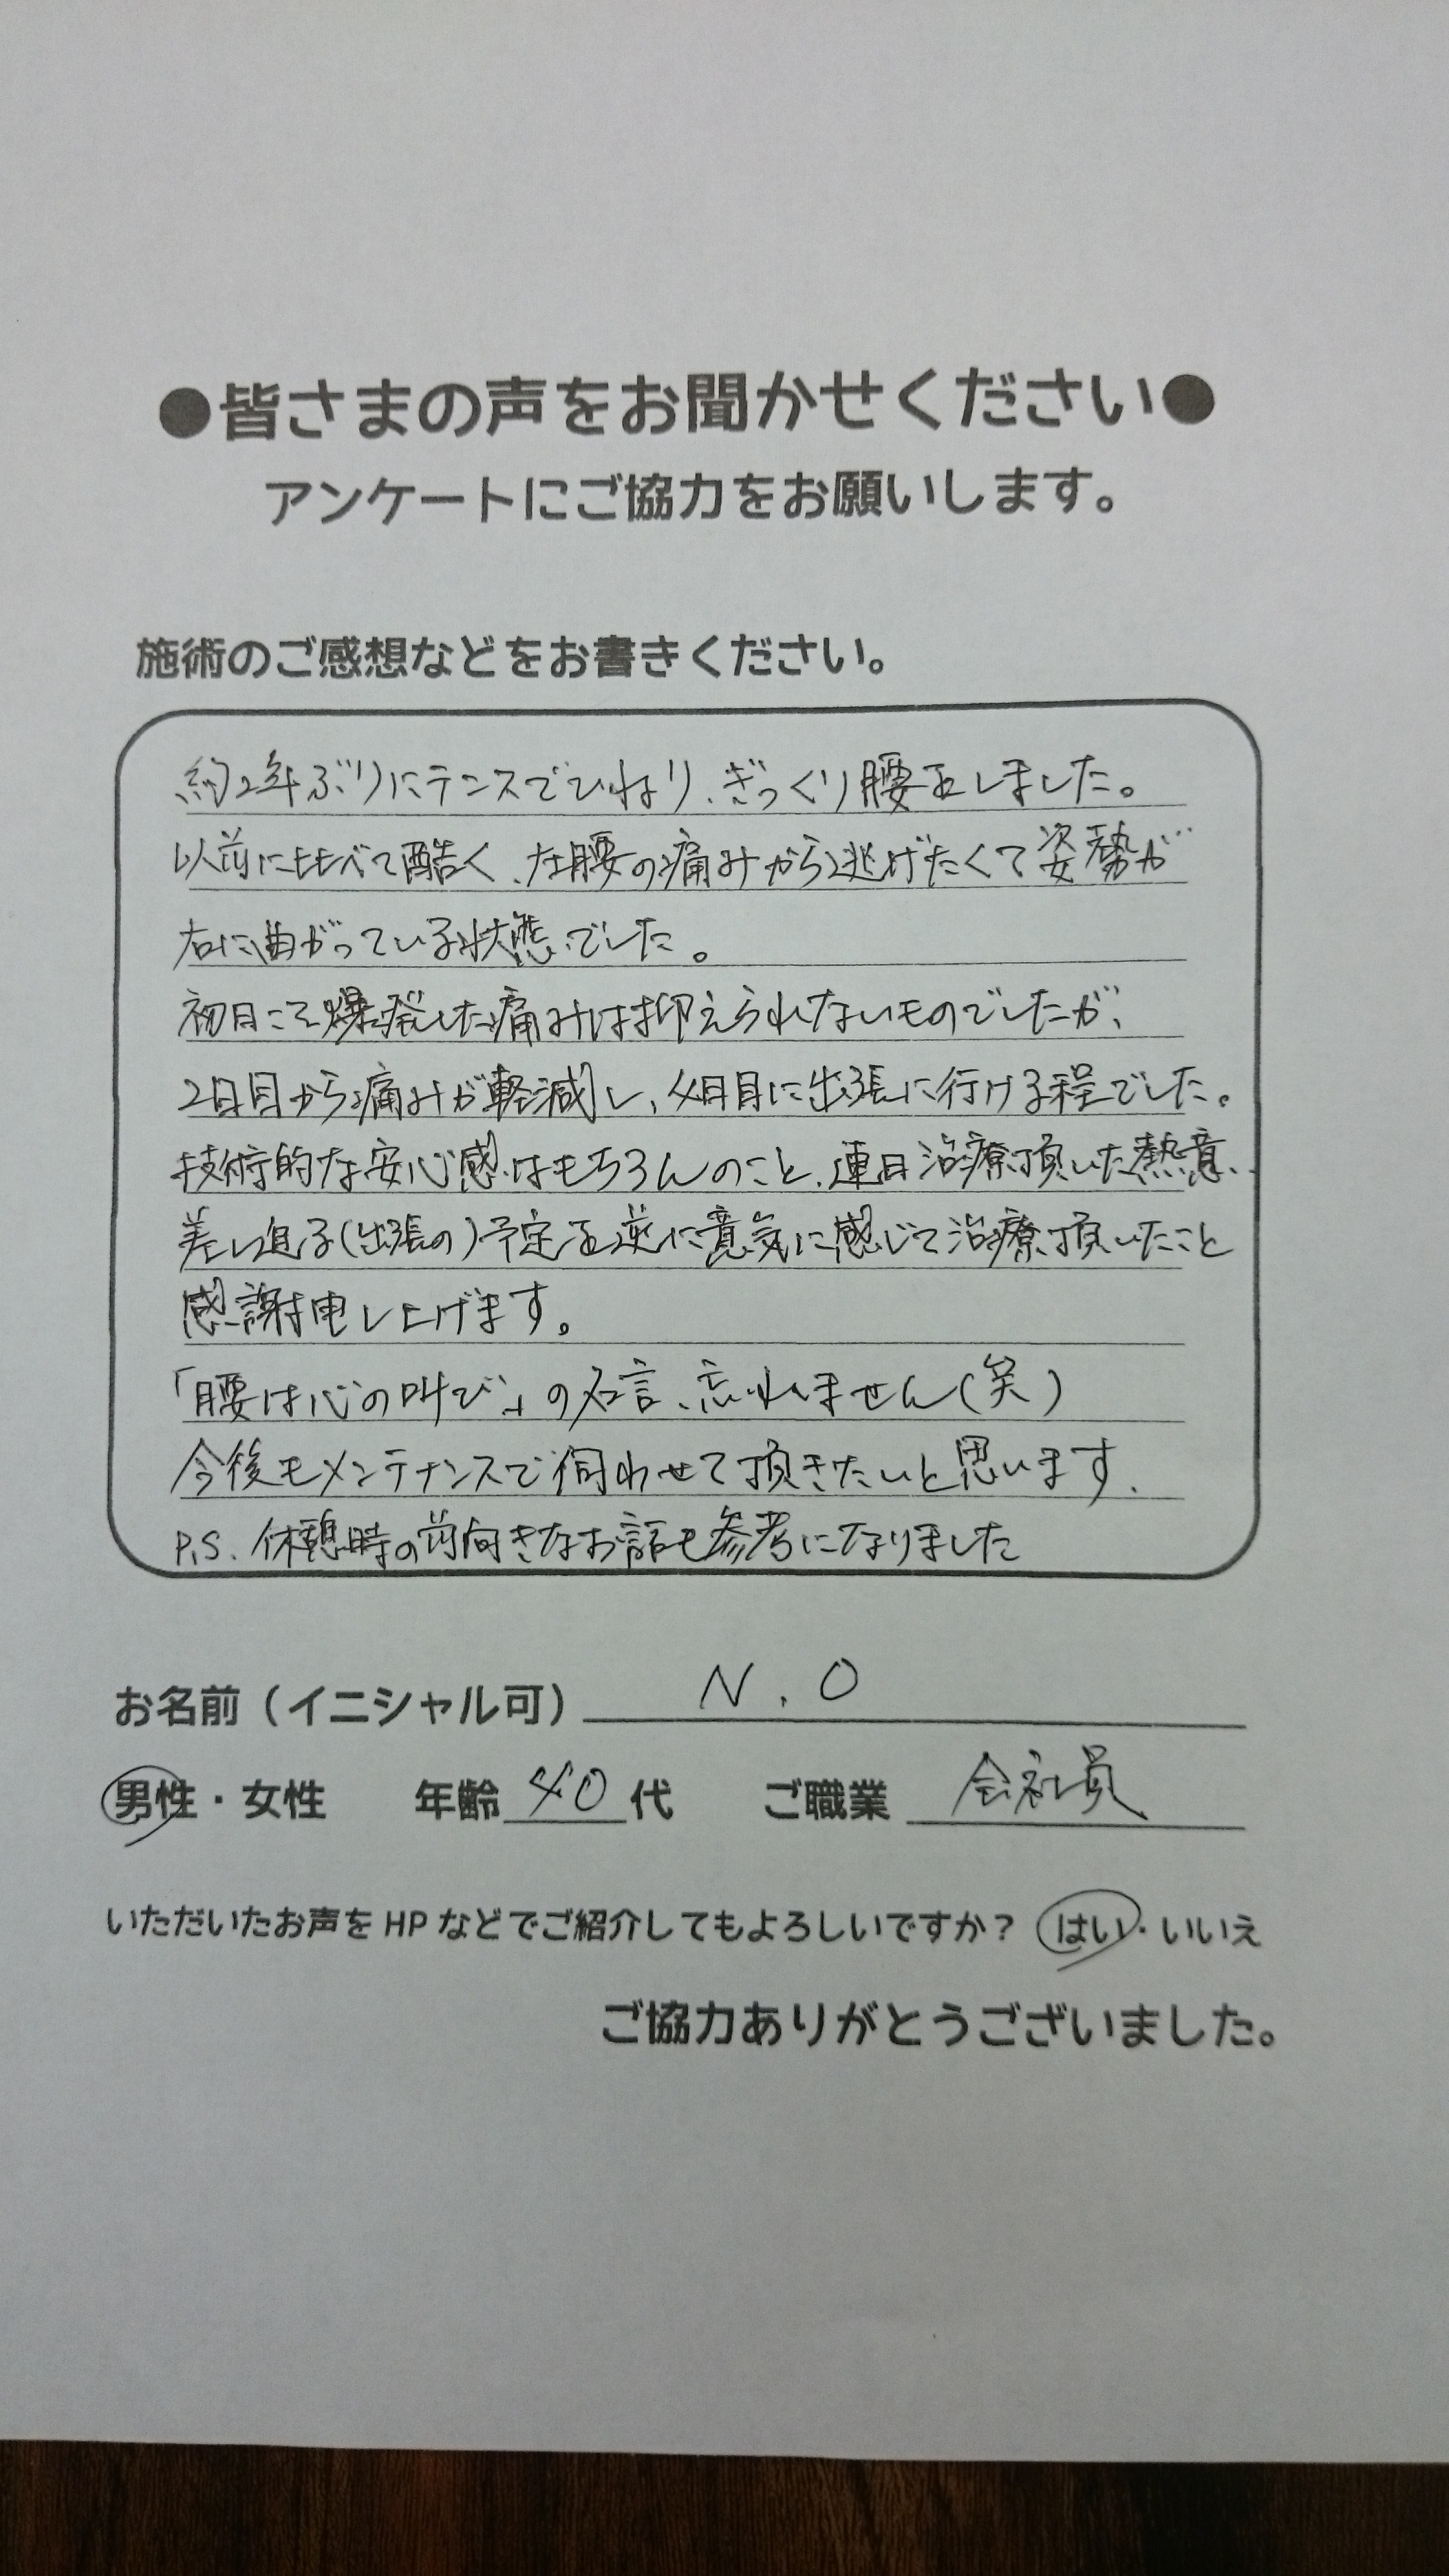 ●皆さまの声をお聞かせください●
アンケートにご協力をお願いします。
施術のご感想などをお書きください。
約2年ぶりにテニスでひねり、ぎっくり腰をしました。
以前に比べて酷く、左腰の痛みから逃げたくて姿勢が
右に曲がっている状態でした。
初日こそ爆発した痛みは抑えられないものでしたが、
2日目から痛みが軽減し、4日目に出張に行ける程でした。
技術的な安心感はもちろんのこと、連日治療頂いた熱意、
差し迫る(出張の)予定を逆に意気に感じて治療頂いたこと
感謝申し上げます。
「腰は心の叫び」の名言、忘れません(笑)
今後もメンテナンスで伺わせて頂きたいと思います.
P.S. 休憩時の前向きなお話も参考になりました
お名前(イニシャル可) N.O
男性・女性 年齢 40 代 ご職業 会社員
いただいたお声をHPなどでご紹介してもよろしいですか? はい・いいえ
ご協力ありがとうございました。